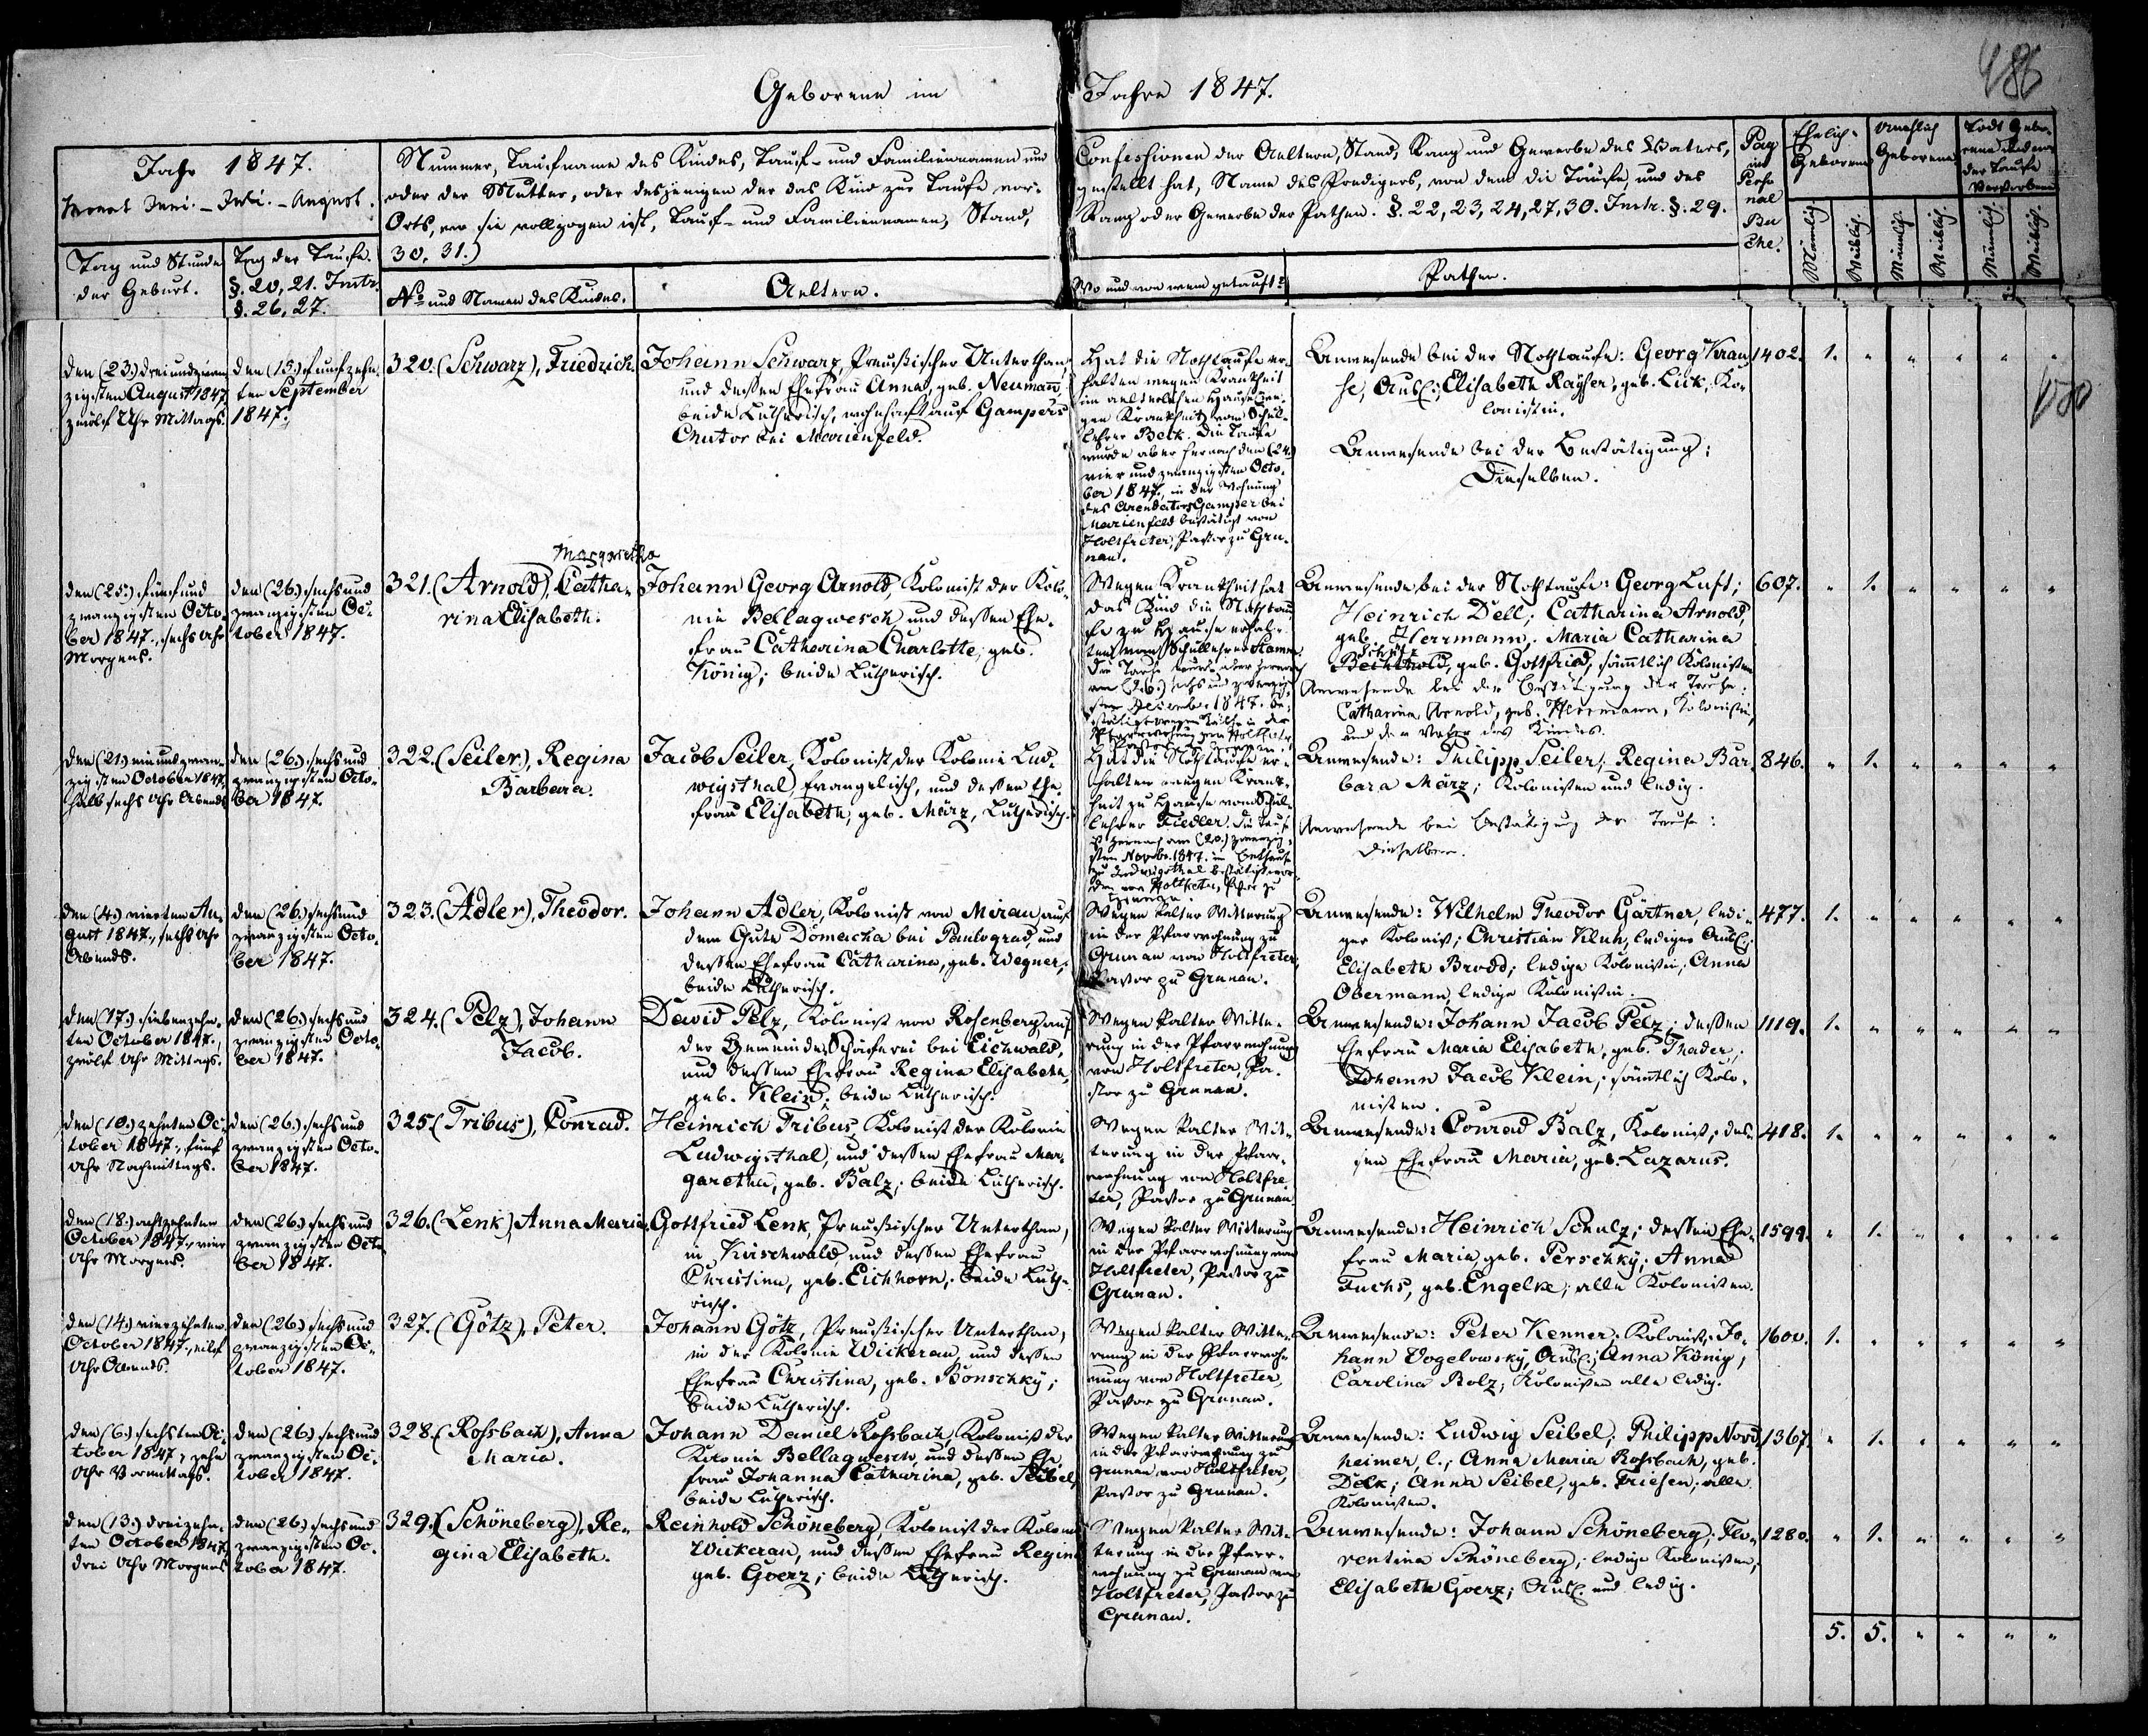 486
Geborene im Jahre 1847.
Jahr 1847.
Monat Juni. - Juli. - August.
Nummer, Taufname des Kindes, Tauf- und Familiennamen und
oder der Mutter, oder desjenigen der das Kind zur Taufe vor-
Orts, wo sie vollzogen ist, Tauf- und Familiennamen, Stand,
30. 31.)
Confessionen der Aeltern, Stand, Rang und Gewerbe des Vaters,
gestellt hat, Name des Predigers, von dem die Taufe, und des
Rang oder Gewerbe der Pathen. §. 22, 23, 24, 27, 30. Instr. §. 29.
Pag
im
Perso
nal
Bu
che.
Ehelich-
Geborene
Unehlich
Geborene
Todt Gebo-
rene und vor
der Taufe
Verstorbene
Männlich.
Weiblich.
Männlich.
Weiblich.
Männlich.
Weiblich.
Tag und Stunde
der Geburt.
Tag der Taufe.
§. 20, 21. Instr.
§. 26, 27.
No und Namen des Kindes.
Aeltern.
Wo und von wem getauft?
Pathen.
den (23.) drei und zwan-
zigsten August 1847
zwölf Uhr Mittags.
den (15.) fünfzehn-
ten September
1847.
320. (Schwarz), Friedrich.
Johann Schwarz, Preußischer Unterthan,
und dessen Ehefrau Anna, geb. Neumann,
beide Lutherisch, wohnhaft auf Gampers
Chutor bei Marienfeld.
Hat die Nothtaufe er-
halten wegen Krankheit
im aelterlichen Hause
gen Krankheit vom Schul-
lehrer Beck. Die Taufe
wurde aber hernach den (24.)
vier und zwanzigsten Octo-
ber 1847., in der Wohnung
des Arendators Gamper bei
Marienfeld bestätigt von
Holtfreter, Pastor zu Gru-
nau.
Anwesende bei der Nothtaufe: Georg Krau-
se, Ausl.; Elisabeth Rayser, geb. Lick, Ko-
lonistin.
Anwesende bei der Bestätigung:
Dieselben.
1402. 1. " " " " "
den (25.) fünf und
zwanzigsten Octo-
ber 1847., sechs Uhr
Morgens.
den (26.) sechs und
zwanzigsten Oc-
tober 1847.
Margaretha
321. (Arnold), Catha-
rina Elisabeth.
Johann Georg Arnold, Kolonist der Kolo-
nie Bellagwesch und dessen Ehe-
frau Catharina Charlotte, geb.
König; beide Lutherisch.
Wegen Krankheit hat
das Kind die Nothtau-
fe zu Hause erhal-
ten vom Schullehrer Stamm
Die Taufe wurde aber hernach
am (26.) sechs und zwanzig-
sten December 1847. be-
stätigt wegen Kälte in der
Pfarrwohnung von Holtfreter,
Pastor zu Grunau.
Anwesende bei der Nothtaufe: Georg Luft;
Heinrich Dell; Catharina Arnold,
geb. Herrmann; Maria Catharina
geb. Gottfried, sämmtlich Kolonisten
Anwesende bei der Bestätigung der Taufe:
Catharina Arnold, geb. Herrmann, Kolonistin,
und der Vater des Kindes.
607. " 1. " " " "
den (21.) ein und zwan-
zigsten October 1847,
halb sechs Uhr Abends
den (26.) sechs und
zwanzigsten Octo-
ber 1847.
322. (Seiler), Regina
Barbara.
Jacob Seiler, Kolonist der Kolonie Lud-
wigsthal, Evangelisch, und dessen Ehe-
frau Elisabeth, geb. März, Lutherisch.
Hat die Nothtaufe er-
halten wegen Krank-
heit zu Hause vom Schul-
lehrer Fiedler. Die Taufe
ist hernach am (20.) zwanzig-
sten Novbr. 1847. im Bethause
zu Ludwigsthal bestätigt wor-
den von Holtfreter, Pastor zu
Grunau.
Anwesende: Philipp Seiler; Regina Bar-
bara März; Kolonisten und ledig.
Anwesende bei Bestätigung der Taufe:
Dieselben.
846. " 1. " " " "
den (4.) vierten Au-
gust 1847., sechs Uhr
Abends.
den (26.) sechs und
zwanzigsten Octo-
ber 1847.
323. (Adler), Theodor.
Johann Adler, Kolonist von Mirau, auf
dem Gute Domacha bei Pawlograd, und
dessen Ehefrau Catharina, geb. Wegner,
beide Lutherisch.
Wegen kalter Witterung
in der Pfarrwohnung zu
Grunau von Holtfreter,
Pastor zu Grunau.
Anwesende: Wilhelm Theodor Gärtner, ledi-
ger Kolonist; Christian Kluh, lediger Ausl.;
Elisabeth Brodd; ledige Kolonistin; Anna
Obermann, ledige Kolonistin.
477. 1. " " " " "
den (17.) siebenzehn-
ten October 1847.,
zwölf Uhr Mittags.
den (26.) sechs und
zwanzigsten Octo-
ber 1847.
324. (Pelz), Johann
Jacob.
David Pelz, Kolonist von Rosenberg, auf
der Gemeinde Schäferei bei Eichwald,
und dessen Ehefrau Regina Elisabeth,
geb. Klein; beide Lutherisch.
Wegen kalter Witte-
rung in der Pfarrwohnung
von Holtfreter, Pa-
stor zu Grunau.
Anwesende: Johann Jacob Pelz; dessen
Ehefrau Maria Elisabeth, geb. Thader;
Johann Jacob Klein; sämmtlich Kolo-
nisten.
1119. 1. " " " " "
den (10.) zehnten Oc-
tober 1847., fünf
Uhr Nachmittags.
den (26.) sechs und
zwanzigsten Octo-
ber 1847.
325. (Tribus), Conrad.
Heinrich Tribus, Kolonist der Kolonie
Ludwigsthal, und dessen Ehefrau Mar-
garetha, geb. Balz; beide Lutherisch.
Wegen kalter Wit-
terung in der Pfarr-
wohnung von Holtfre-
ter, Pastor zu Grunau
Anwesende: Conrad Balz, Kolonist; des-
sen Ehefrau Maria, geb. Lazarus.
418. 1. " " " " "
den (18.) achtzehnten
October 1847., vier
Uhr Morgens.
den (26.) sechs und
zwanzigsten Octo
ber 1847.
326. (Lenk), Anna Maria.
Gottfried Lenk, Preußischer Unterthan,
in Kirschwald, und dessen Ehefrau
Christina, geb. Eichhorn; beide Luthe-
risch.
Wegen kalter Witterung
in der Pfarrwohnung von
Holtfreter, Pastor zu
Grunau.
Anwesende: Heinrich Schulz; dessen Ehe-
frau Maria, geb. Perschky; Anna
Fuchs, geb. Engelke; alle Kolonisten.
1599. " 1. " " " "
den (14.) vierzehnten
October 1847., eilf
Uhr Abends.
den (26.) sechs und
zwanzigsten Oc-
tober 1847.
327. (Götz), Peter.
Johann Götz, Preußischer Unterthan,
in der Kolonie Wickerau, und dessen
Ehefrau Christina, geb. Bonschky;
beide Lutherisch.
Wegen kalter Witte-
rung in der Pfarrwoh-
nung von Holtfreter,
Pastor zu Grunau.
Anwesende: Peter Kenner, Kolonist; Jo-
hann Vogelowsky, Ausl.; Anna König;
Carolina Bolz; Kolonisten alle ledig.
1600. 1. " " " " "
den (6.) sechsten Oc-
tober 1847., zehn
Uhr Vormittags.
den (26.) sechs und
zwanzigsten Oc-
tober 1847.
328. (Rossbach), Anna
Maria.
Johann Daniel Rossbach, Kolonist der
Kolonie Bellagwesch, und dessen Ehe-
frau Johanna Catharina, geb. Seibel,
beide Lutherisch.
Wegen kalter Witterung
in der Pfarrwohnung zu
Grunau von Holtfreter,
Pastor zu Grunau.
Anwesende: Ludwig Seibel; Philipp Nord-
heimer, l.; Anna Maria Rossbach, geb.
Delk; Anna Seibel, geb. Friesen; alle
Kolonisten.
1367. " 1. " " " "
den (13.) dreizehn-
ten October 1847
drei Uhr Morgens
den (26.) sechs und
zwanzigsten Oc-
tober 1847.
329. (Schöneberg), Re-
gina Elisabeth.
Reinhold Schöneberg, Kolonist der Kolonie
Wickerau, und dessen Ehefrau Regina
geb. Goerz; beide Lutherisch.
Wegen kalter Wit-
terung in der Pfarr-
wohnung zu Grunau von
Holtfreter, Pastor zu
Grunau.
Anwesende: Johann Schöneberg; Flo-
rentina Schöneberg; ledige Kolonisten;
Elisabeth Goerz; Ausl. und ledig.
1280. " 1. " " " "
5. 5. " " " "